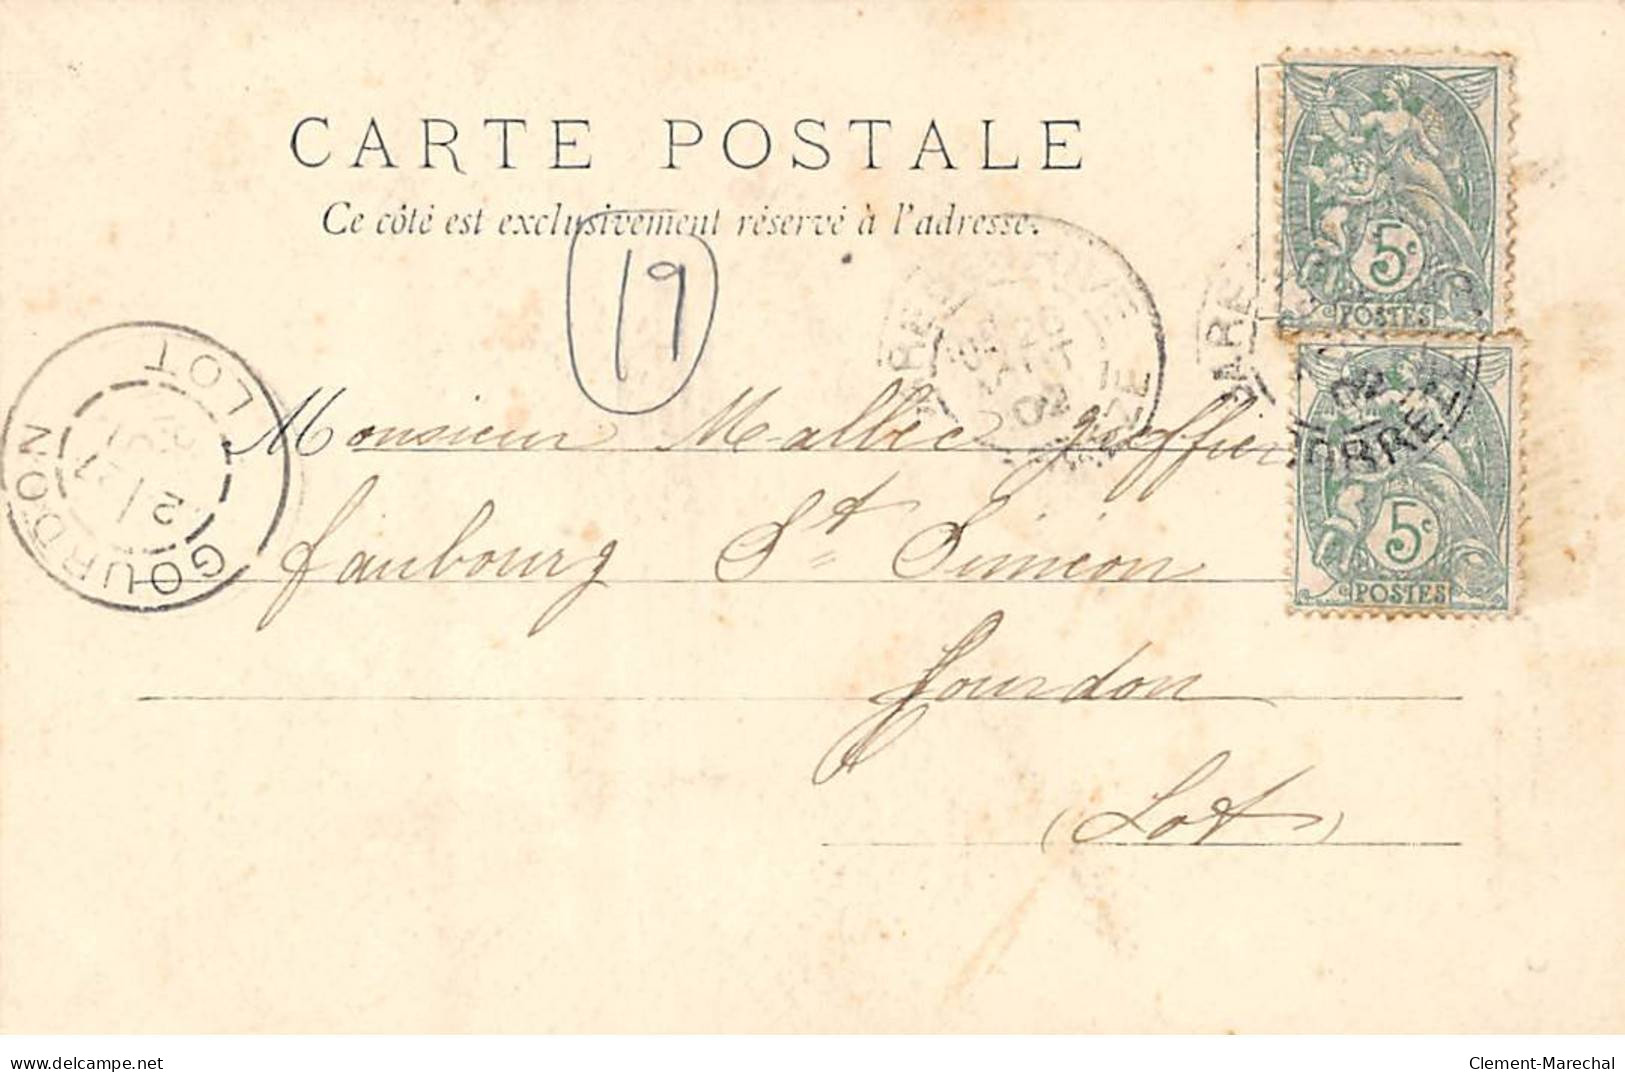 CARTE POSTALE
Ce côté est exclusivement réservé à l'adresse.
19
5c
POSTES
5c
POSTES
GOURDON
LOT
Monsieur Malbec greffier
faubourg St Siméon
Gourdon
(Lot)
delcampe.net
Clement-Marechal